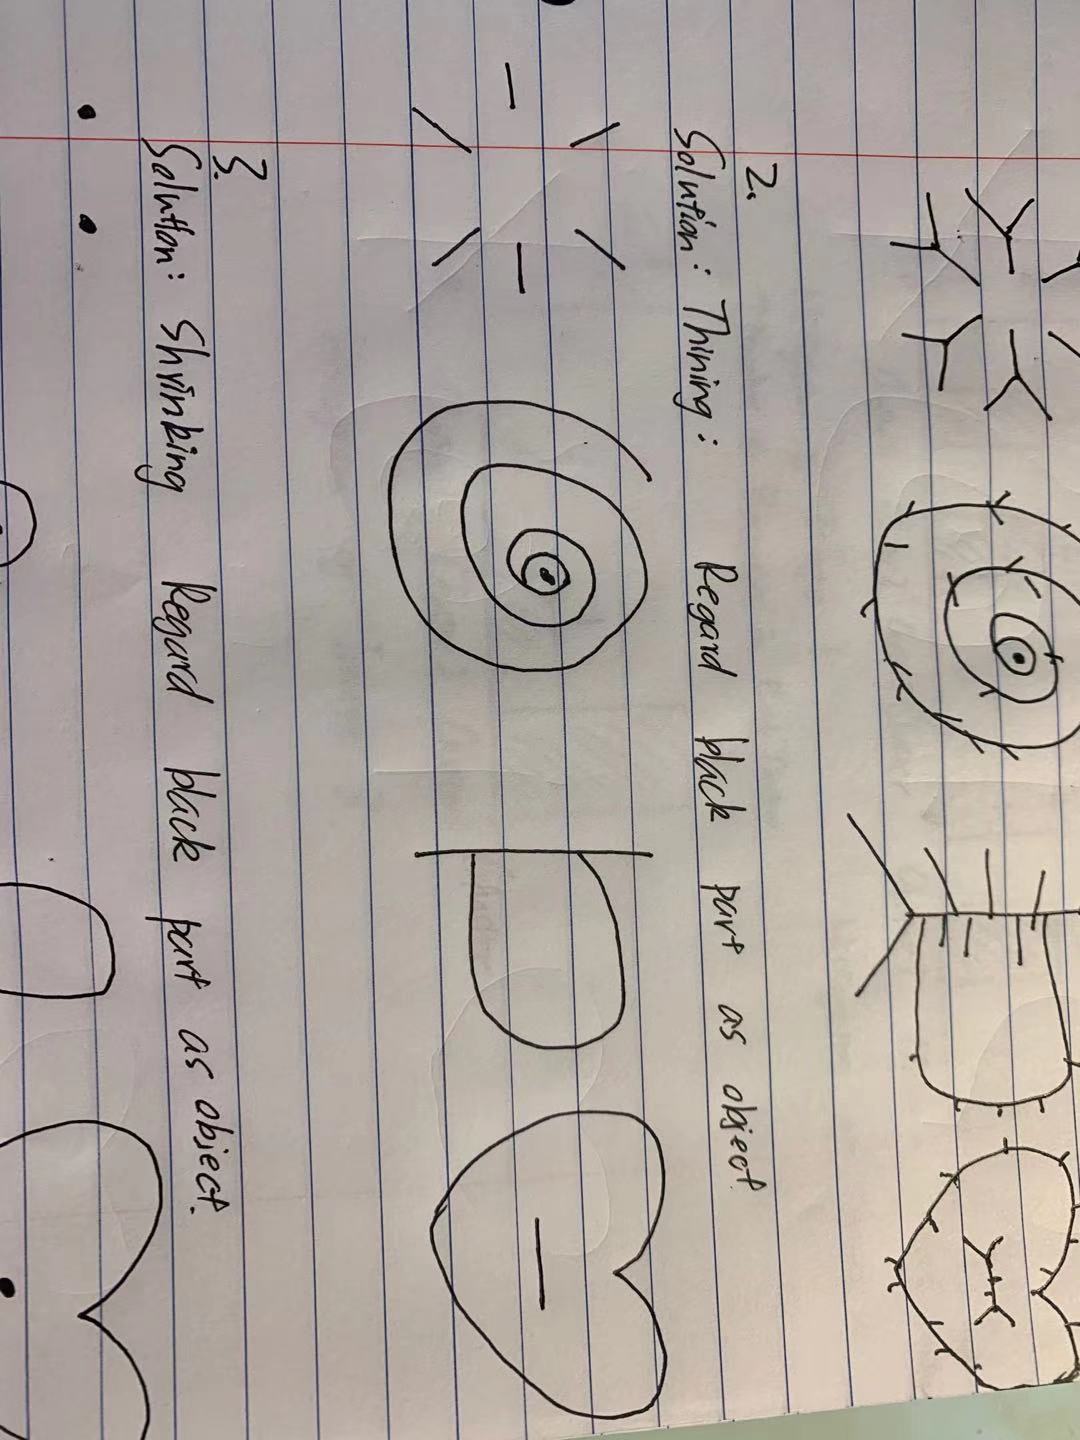 2.
Solution: Thining: Regard black part as object.
3.
Solution: Shrinking Regard black part as object.